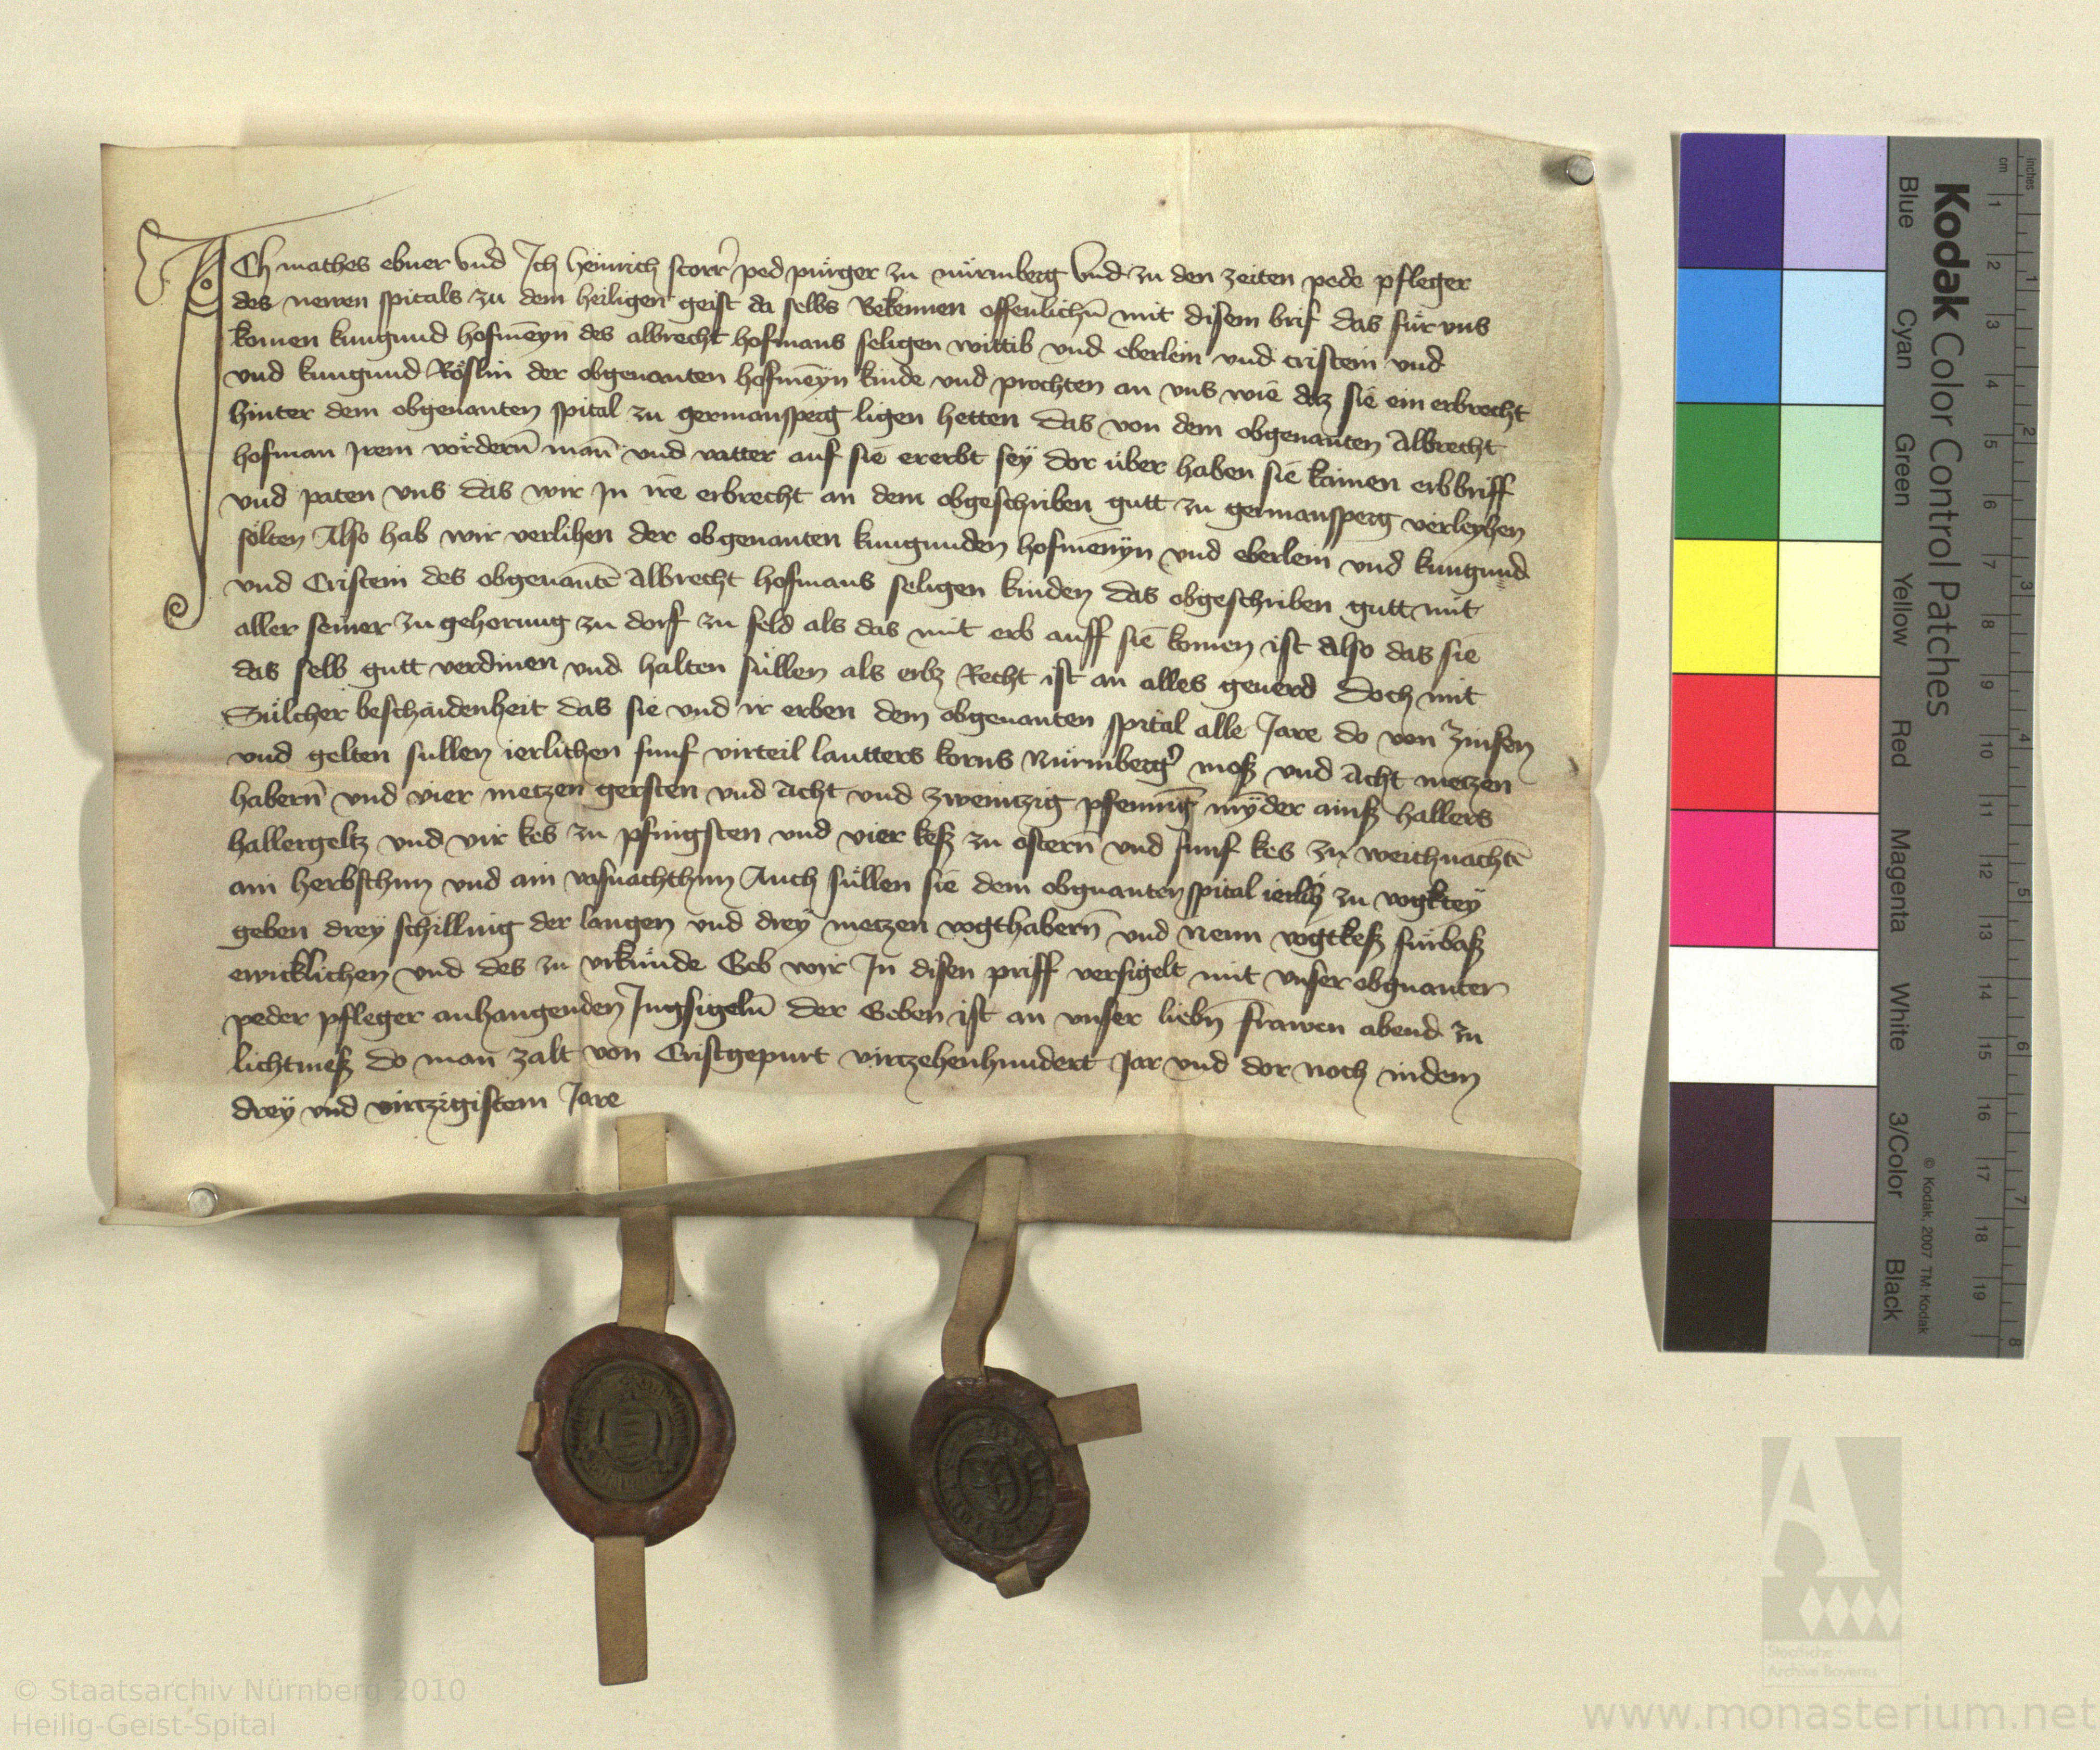 ICh mathes ebner Vnd Jch heinrich storr ped pürger zu nürmberg Vnd zu den zeiten pede pfleger
des newen spitals zu dem heiligen geist da selbs Bekennen offenlichn̄ mit disem brif das für vns
komen kungund hofmēyn des albrecht hofmans seligen wittib vnd eberlein vnd cristein vnd
vnd kungund Röslin der obgenanten hofmēyn kinde vnd prochten an vns wie daz sie ein erbrecht
hinter dem obgenanten spital zu germansperg ligen hetten das von dem obgenanten Albrecht
hofman jrem vördern̄ man̄ vnd vatter auf sie ererbt seÿ dor über haben sie kainen erbbriff
vnd paten vns das wir jn ire erbrecht an dem obgeschriben gutt zu germansperg verleyhen
sölten Also hab wir verlihen der obgenanten kungunden hofmēnyn vnd eberlein vnd kungund
vnd Cristein des obgenantē Albrecht hofmans seligen kinden das obgeschriben gutt mit
aller seiner zu gehorung zu dorf zu feld als das mit erb auff sie komen ist Also das sie
das selb gutt verdinen vnd halten süllen als erbz Recht ist an alles geuerd Doch mit
Sülcher beschaidenheit das sie vnd ir erben dem obgenanten spital alle Jare do von zinsen
vnd gelten sullen ierlichen funf virteil lautters korns Nürmberg' moß vnd Acht metzen
habern̄ vnd vier metzen gersten vnd Acht vnd zweintzig pfening mȳder ainß hallers
hallergeltz vnd vir kes zu pfingsten vnd vier keß zu ostern̄ vnd funf kes zu weichnachtē
ain herbsthun vnd ain vasnachthun Auch süllen sie dem obgnanten spital ierlich zu vogktey
geben drey schilling der langen vnd dreÿ metzen vogthabern̄ vnd Neun vogtkeß fürbaß
ewicklichen vnd des zu vrkünde Geb wir Jn disen priff versigelt mit vnser obgnanter
peder pfleger anhangenden Jngsigeln̄ Der Geben ist an vnser liebn̄ frawen abend zu
lichtmeß do man̄ zalt von Cristgepurt virtzehenhundert Jar vnd dor noch indem
dreÿ vnd virtzigistem Jare
Kodak Color Control Patches
Blue Cyan Green Yellow Red Magenta White 3/Color Black
© Kodak, 2007 TM: Kodak
inches 1 2 3 4 5 6 7 8
cm 1 2 3 4 5 6 7 8 9 10 11 12 13 14 15 16 17 18 19
Staatliche
Archive Bayerns
© Staatsarchiv Nürnberg 2010
Heilig-Geist-Spital
www.monasterium.net